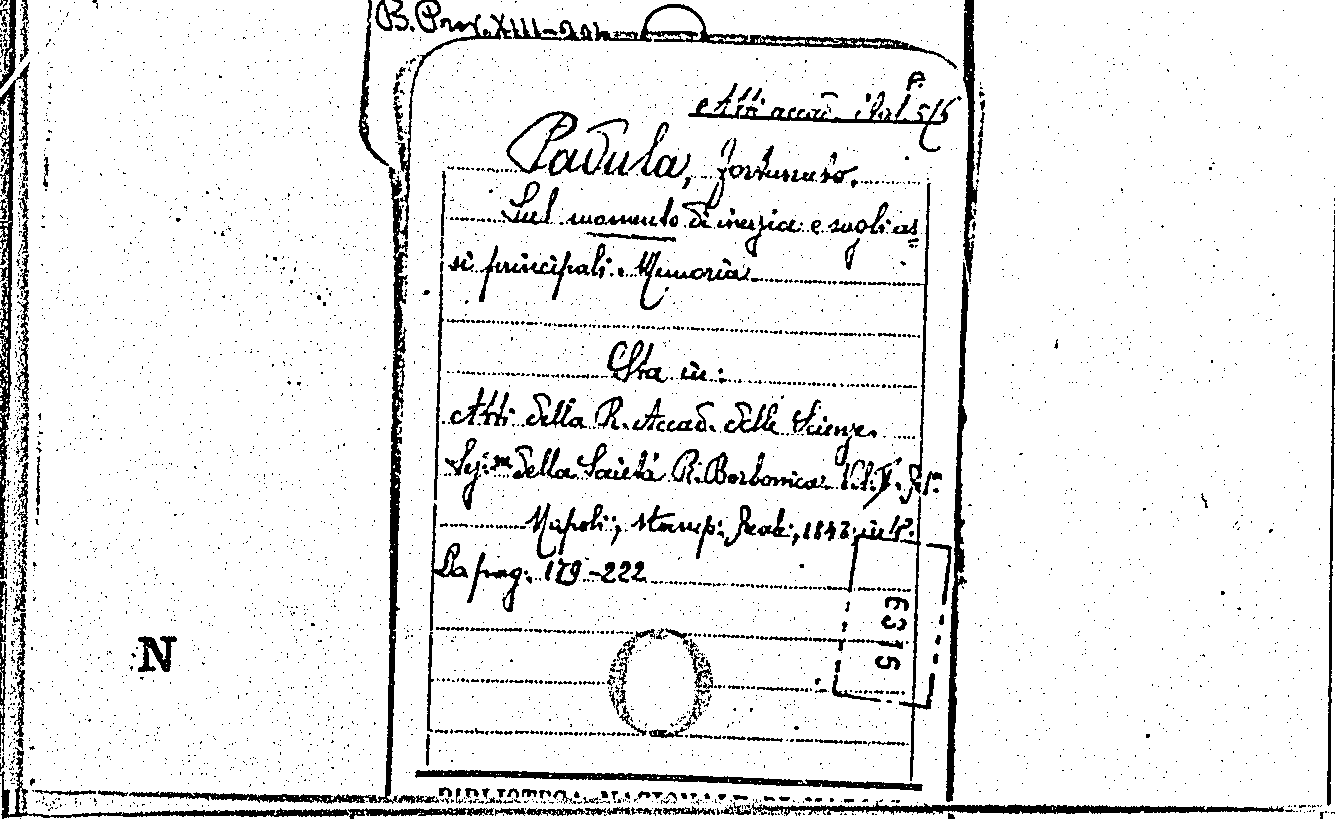 B. Prov. XIII-
P.
Atti accad. ital 5/6
Padula, Fortunato.
Sul momento di inerzia e sugli as=
si principali. Memoria
Sta in:
Atti della R. Accad. delle Scienze
Sez.ne della Società R. Borbonica. Vol. V.
Napoli, Stamp: Reale, 1843 in 4°.
Da pag. 179-222
6315
N
BIBLIOTECA NAZIONALE DI